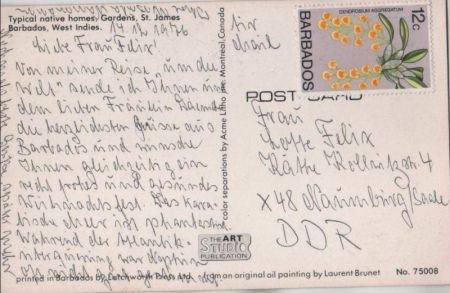 Typical native homes, Gardens, St. James
Barbados, West Indies.
14.12.1976
Liebe Frau Felix!
Von meiner Reise „um die
Welt" sende ich Ihnen und
dem lieben Fräulein
die herzlichsten Grüsse aus
Barbados und wünsche
Ihnen gleichzeitig ein
recht frohes und gesundes
Weihnachtsfest. Das Kara-
bische Meer ist phantastisch.
Während der Atlantik-
überquerung war
printed in Barbados by Letchworth Press Ltd.
color separations by Acme Litho Inc. Montreal, Canada
THE ART
STUDIO
PUBLICATION
from an original oil painting by Laurent Brunet
air
mail
DENDROBIUM AGGREGATUM
BARBADOS
12c
POST CARD
Frau
Lotte Felix
Käthe Kollwitzstr. 4
X 48 Naumburg/Saale
DDR
No. 75008